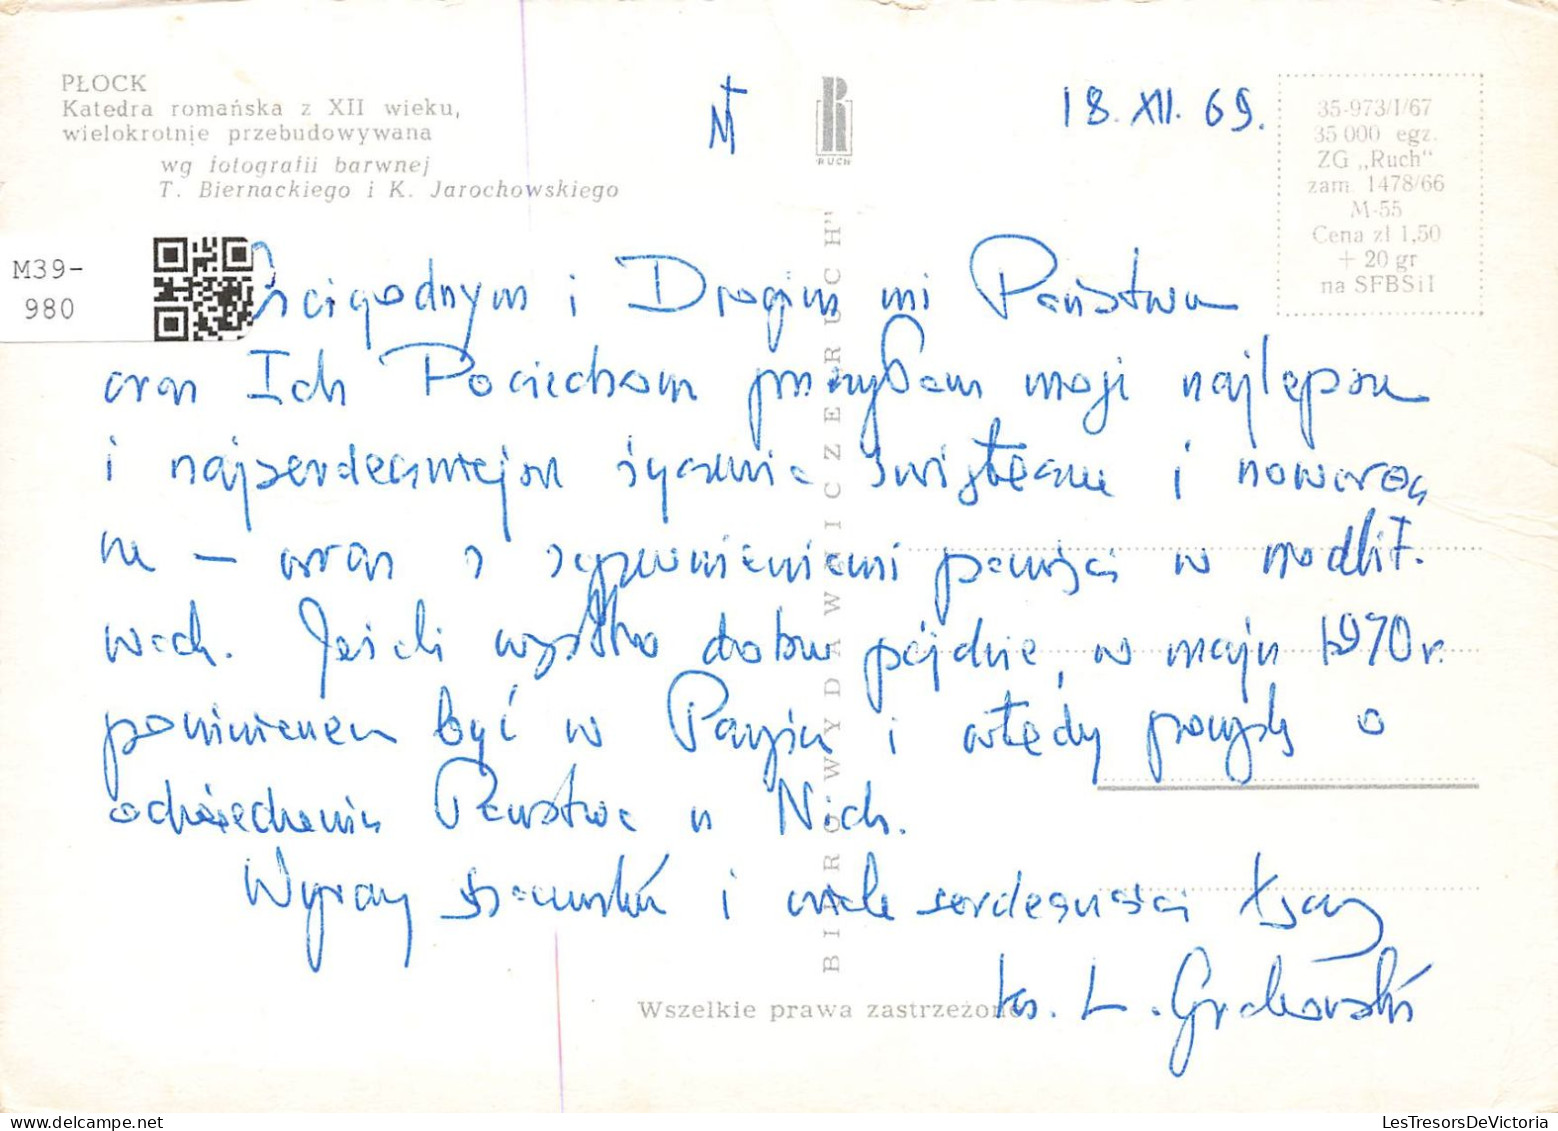 PŁOCK
Katedra romańska z XII wieku,
wielokrotnie przebudowywana
wg fotografii barwnej
T. Biernackiego i K. Jarochowskiego
RUCH
18. XII. 69.
35-973/I/67
35 000 egz.
ZG „Ruch“
zam. 1478/66
M-55
Cena zł 1,50
+ 20 gr
na SFBSiI
M39-
980
BIURO WYDAWNICZE „RUCH"
Czcigodnym i Drogim mi Państwu
oraz Ich Pociechom przesyłam moje najlepsze
i najserdeczniejsze życzenia świąteczne i noworocz
ne — oraz z zapewnieniami pamięci w modlit.
wach. Jeżeli wszystko dobrze pójdzie, w maju 1970 r.
powinienem być w Paryżu i wtedy pomyślę o
odwiedzeniu Państwa u Nich.
Wyrazy szacunku i wiele serdeczności łączę
ks. L. Grabowski
Wszelkie prawa zastrzeżone
LesTresorsDeVictoria